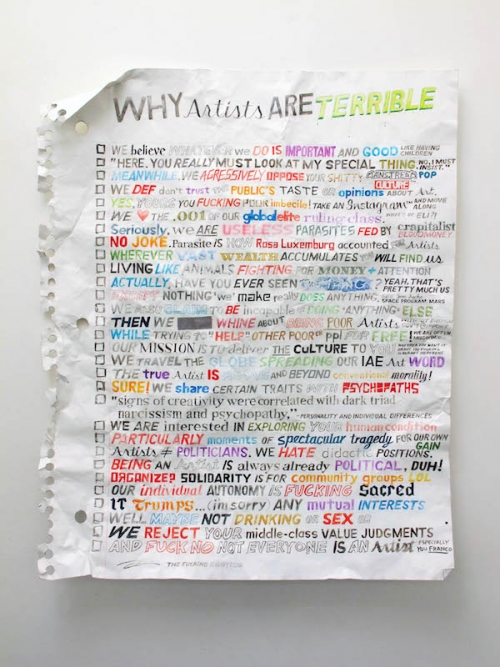 WHY Artists ARE TERRIBLE
WE believe WHATEVER we DO IS IMPORTANT AND GOOD LIKE HAVING CHILDREN
"HERE. YOU REALLY MUST LOOK AT MY SPECIAL THING. NO, I MUST INSIST."
MEANWHILE, WE AGRESSIVELY OPPOSE YOUR SHITTY MAINSTREAM POP CULTURE
WE DEF don't trust THE PUBLIC'S TASTE OR opinions ABOUT Art.
YES, YOU YOU FUCKING imbecile! TAKE AN Instagram AND MOVE ALONG
WE ❤ THE .001 OF OUR global elite ruling class.
Seriously, we ARE USELESS PARASITES FED BY crapitalist BLOODMONEY
NO JOKE. Parasite IS HOW Rosa Luxemburg accounted Artists
WHEREVER VAST WEALTH ACCUMULATES WILL FIND us
LIVING LIKE ANIMALS FIGHTING FOR MONEY + ATTENTION
ACTUALLY, HAVE YOU EVER SEEN ? YEAH. THAT'S PRETTY MUCH US
NOTHING we make really DOES ANYTHING. SPACE PROGRAM: MARS
TO BE incapable OF DOING ANYTHING ELSE
THEN WE WHINE ABOUT BEING POOR Artists
WHILE TRYING TO "HELP" OTHER POOR ppl FOR FREE!
OUR MISSION IS TO deliver THE CuLTURE TO YOU
WE TRAVEL THE GLOBE SPREADING OUR IAE Art WORD
THE true Artist IS AND BEYOND conventional morality!
SURE! WE share CERTAIN TRAITS WITH PSYCHOPATHS
"signs of creativity were correlated with dark triad
narcissism and psychopathy." -PERSONALITY AND INDIVIDUAL DIFFERENCES
WE ARE interested IN EXPLORING YOUR human condition
PARTICULARLY moments OF spectacular tragedy, FOR OUR OWN GAIN
Artists ≠ POLITICIANS. WE HATE didactic POSITIONS.
BEING AN Artist IS always already POLITICAL, DUH!
ORGANIZE? SOLIDARITY IS FOR community groups LOL
OUR individual AUTONOMY IS FUCKING Sacred
IT Trumps...(im sorry) ANY mutual INTERESTS
WELL MAYBE NOT DRINKING OR SEX
WE REJECT YOUR middle-class VALUE JUDGMENTS
AND FUCK NO NOT EVERYONE IS AN Artist ESPECIALLY YOU FRANCO